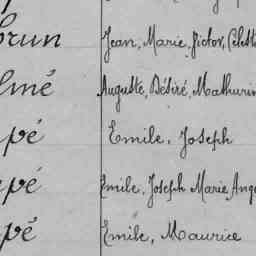 brun Jean, Marie, Victor, Célest
lmé Auguste, Désiré, Mathurin
pé Emile, Joseph
pé Emile, Joseph Marie Ange
pé Emile, Maurice